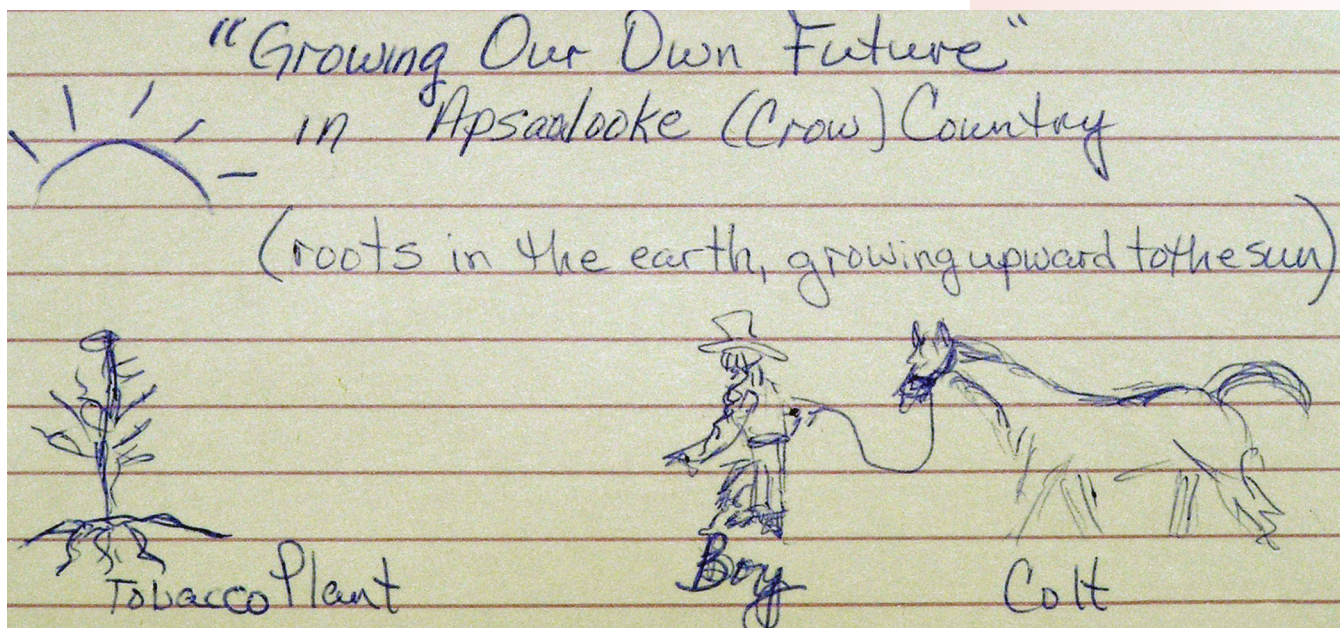 "Growing Our Own Future"
in Apsaalooke (Crow) Country
(roots in the earth, growing upward to the sun)
Tobacco Plant
Boy
Colt